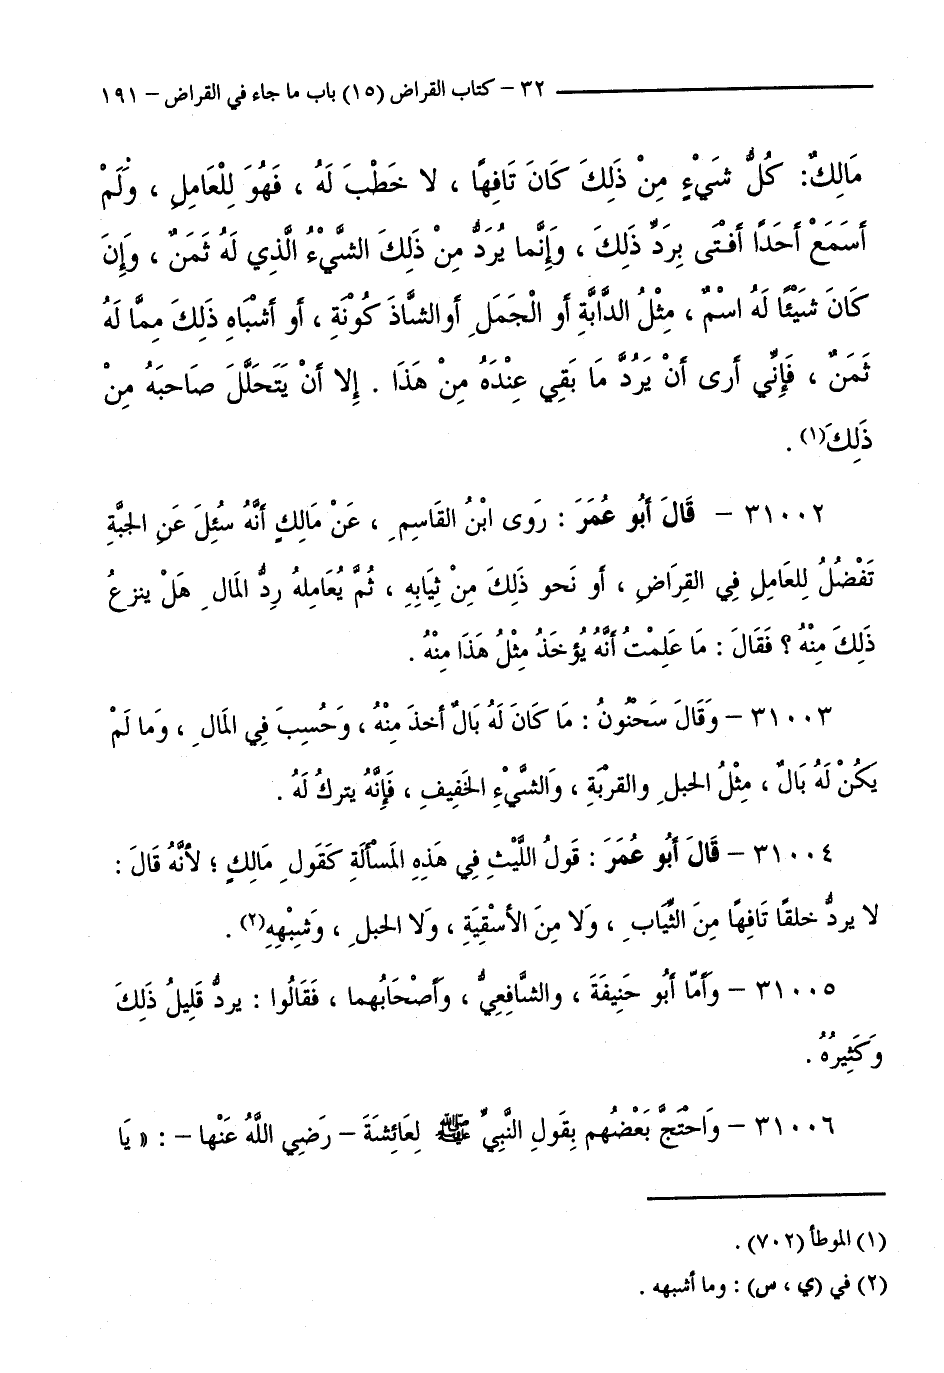 ٣٢ – كتاب القراض (١٥) باب ما جاء في القراض – ١٩١
مَالِكٌ: كُلُّ شَيْءٍ مِنْ ذَلِكَ كَانَ تَافِهًا ، لا خَطْبَ لَهُ ، فَهُوَ لِلْعَامِلِ ، وَلَمْ
أَسَمَعْ أَحَدًا أَفْتَى بِرَدِّ ذَلِكَ ، وَإِنَّما يُرَدُّ مِنْ ذَلِكَ الشَّيْءُ الَّذِي لَهُ ثَمَنٌ ، وَإِن
كَانَ شَيْئًا لَهُ اسْمٌ ، مِثْلُ الدَّابَّةِ أو الْجَمَلِ أوالشَّاذَ كُونَةِ ، أو أَشْبَاهِ ذَلِكَ مِمَّا لَهُ
ثَمَنٌ ، فَإِنِّي أرى أَنْ يَرُدَّ مَا بَقِي عِنْدَهُ مِنْ هَذَا . إِلا أَنْ يَتَحَلَّلَ صَاحبَهُ مِنْ
ذَلِكَ(١) .
٣١٠٠٢ – قَالَ أَبُو عُمَرَ : رَوى ابْنُ القَاسِمِ ، عَنْ مَالِكٍ أَنَّهُ سُئِلَ عَنِ الجبَّةِ
تَفْضُلُ لِلعَامِلِ فِي القِرَاضِ ، أو نَحو ذَلِكَ مِنْ ثِيَابِهِ ، ثُمَّ يُعَامِلهُ رِدُّ المَالِ هَلْ ينزعُ
ذَلِكَ مِنْهُ ؟ فَقَالَ : مَا عَلِمْتُ أَنَّهُ يُؤخَذُ مِثْلُ هَذَا مِنْهُ .
٣١٠٠٣ – وَقَالَ سَحْنُونُ : مَا كَانَ لَهُ بَالٌ أخذَ مِنْهُ ، وَحُسِبَ فِي المَالِ ، وَما لَمْ
يَكُنْ لَهُ بَالٌ ، مِثْلُ الحبلِ والقربَةِ ، وَالشَّيْءِ الخَفِيفِ ، فَإِنَّهُ يتركُ لَهُ .
٣١٠٠٤ – قَالَ أَبُو عُمَرَ : قَولُ اللَّيْثِ فِي هَذِهِ المَسْأَلَةِ كَقَولِ مَالِكٍ ؛ لأَنَّهُ قَالَ :
لا يردُّ خلقًا تَافِهًا مِنَ الثِّيَابِ ، وَلا مِنَ الأَسْقِيَةِ ، وَلا الحبلِ ، وَشبْهِهِ(٢) .
٣١٠٠٥ – وَأَمَّا أَبُو حَنِيفَةَ ، والشَّافِعِيُّ ، وَأَصْحَابُهما ، فَقَالُوا : يردُّ قَلِيلُ ذَلِكَ
وَكَثِيرُهُ .
٣١٠٠٦ – وَاحْتَجَّ بَعْضُهم بِقَولِ النَّبِيِّ ﷺ لِعَائِشَةَ – رَضِي اللَّهُ عَنْها – : « يَا
(١) الموطأ (٧٠٢) .
(٢) في (ي ، س) : وما أشبهه .